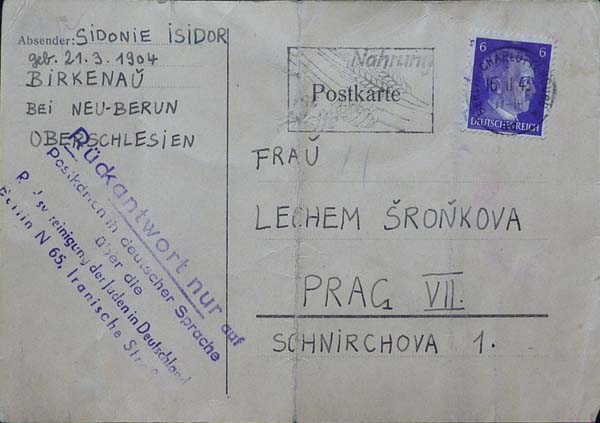 Absender: SIDONIE ISIDOR
geb. 21.3.1904
BIRKENAŬ
BEI NEU-BERUN
OBERSCHLESIEN
Rückantwort nur auf
Postkarten in deutscher Sprache
über die
vereinigung der Juden in Deutschland
Berlin N 65, Iranische
Nahrung
Postkarte
6 6
CHARLOT
16 11 4
DEUTSCHES REICH
FRAŬ
LECHEM ŠROŇKOVA
PRAG VII.
SCHNIRCHOVA 1.